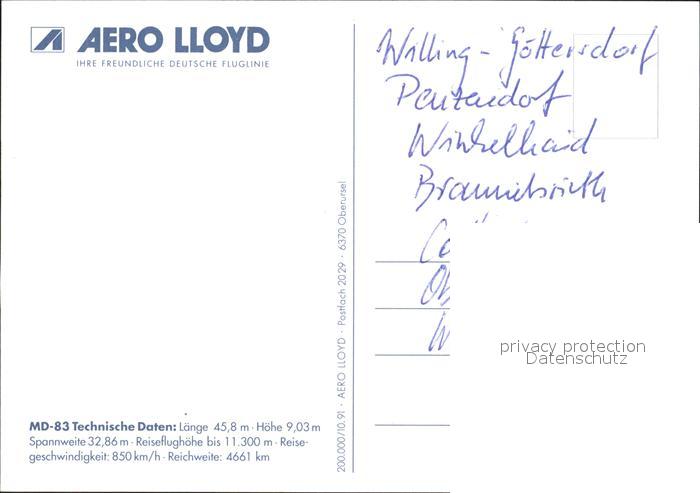 AERO LLOYD
IHRE FREUNDLICHE DEUTSCHE FLUGLINIE
Willing - Göttersdorf
Penzendorf
Winkelhaid
200.000/10.91 · AERO LLOYD · Postfach 2029 · 6370 Oberursel
privacy protection
Datenschutz
MD-83 Technische Daten: Länge 45,8 m · Höhe 9,03 m
Spannweite 32,86 m · Reiseflughöhe bis 11.300 m · Reise-
geschwindigkeit: 850 km/h · Reichweite: 4661 km